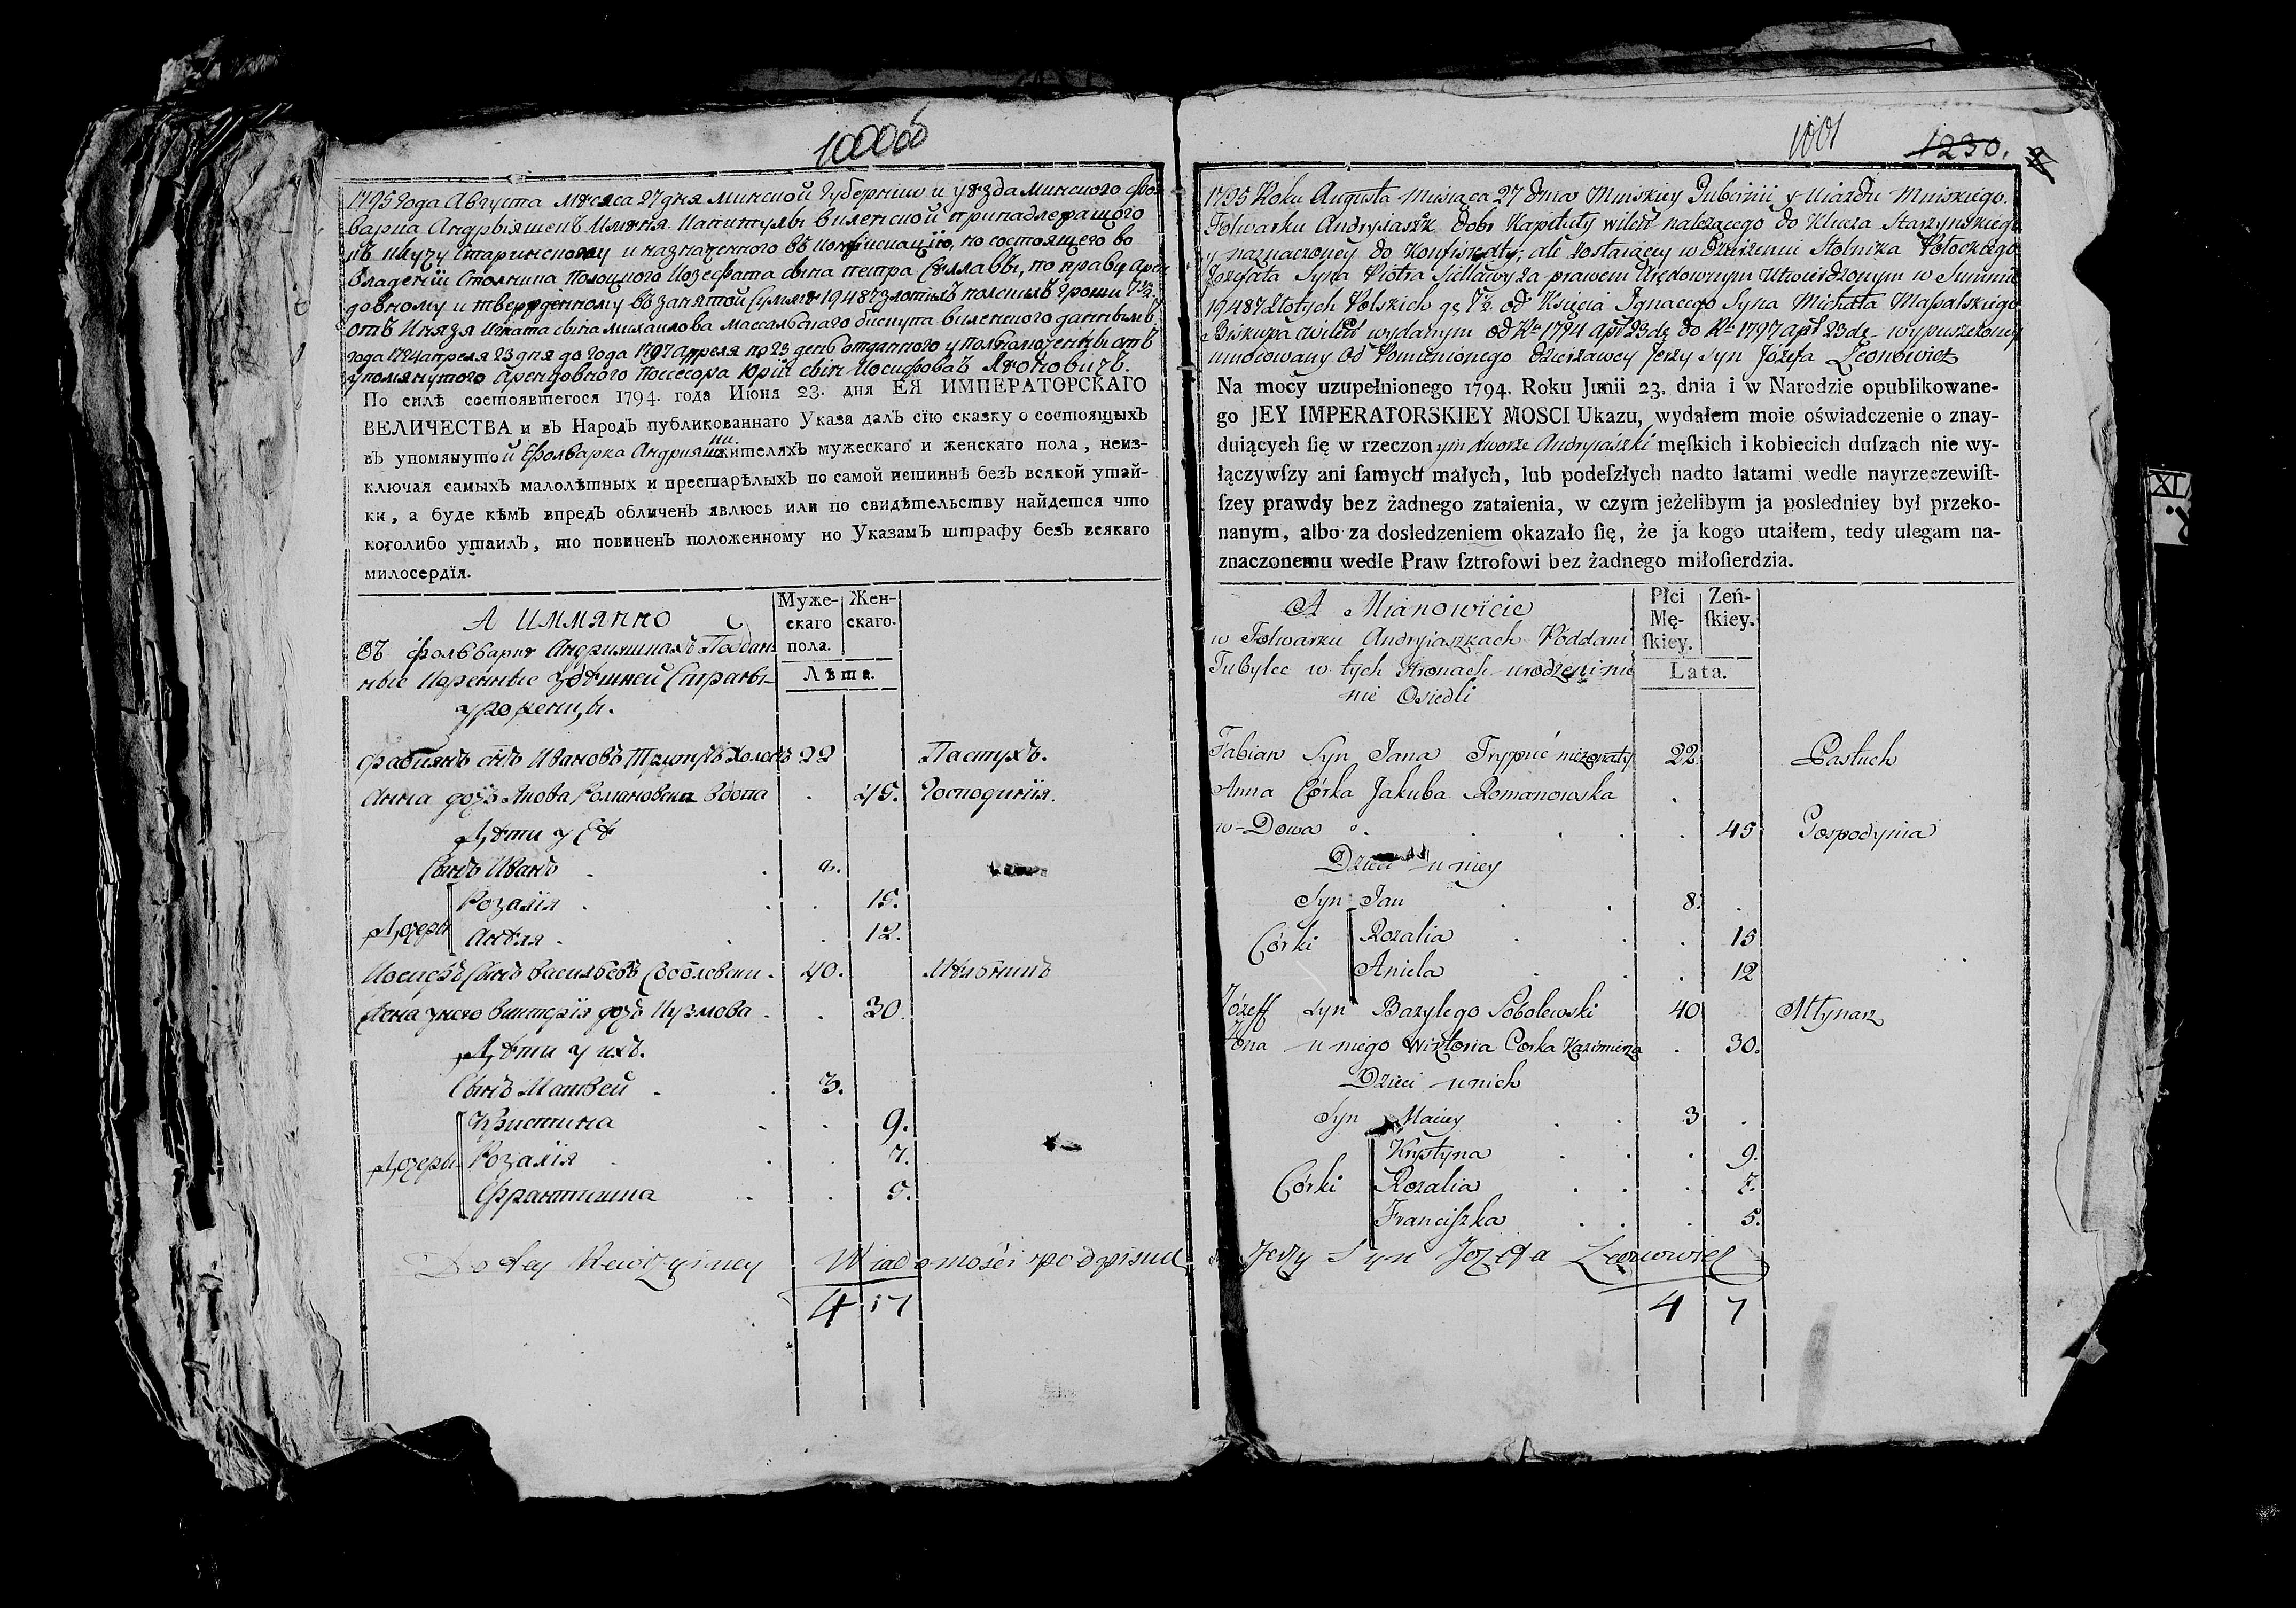 10000
1795 года Августа мѣсяца 27 дня минской Губернiи и уѣзда минского фол
варка Андрыяшекъ Имѣния Капитулы виленской принадлежащого
къ ключу Старинскому и назначенного въ конфискацiю, но состоящего во
владенiи Столника полоцкого Иозефата сына петра Селлавы, по праву Арен
довному и твержденному въ занятой Суммѣ 19487 злотихъ полскихъ Гроши 7½
отъ Князя Игната сына михаилова массальского бискупа виленского даннымъ
года 1794 апреля 23 дня до года 1797 Апреля по 23 день отданного уполномоченный отъ
упомянутого арендовного Поссесора Юрiй сынъ Иосифовъ Леоновичъ.
По силѣ состоявшегося 1794. года Июня 23. дня ЕЯ ИМПЕРАТОРСКАГО
ВЕЛИЧЕСТВА и въ Народъ публикованнаго Указа далъ сїю сказку о состоящыхъ
въ упомянутой Фолварка Андрияшки жителяхъ мужескаго и женскаго пола, неиз-
ключая самыхъ малолѣтныхъ и престарѣлыхъ по самой истиннѣ безъ всякой утай-
ки, а буде кѣмъ впредъ обличенъ явлюсь или по свидѣтельству найдется что
коголибо утаилъ, то повиненъ положенному по Указамъ штрафу безъ всякаго
милосердїя.
А Иммянно
Муже-
скаго
пола.
Жен-
скаго.
Лѣта.
Въ фольварке Андрияшкахъ Поддан
ные Коренные здѣшней Страны
уроженцы.
Фабиянъ сынъ Ивановъ Трипутъ Холостъ 22 Пастухъ.
Анна дочь Якова Романовска вдова . 45. Господинiя.
Дѣти у Ее
Сынъ Иванъ . . 8.
Дочери
Розалiя . . . 15.
Анеля . . . 12.
Иосифъ Сынъ Васильевъ Соболевски . 40. Мѣльникъ
Жена унего Виктория дочь Кузмова . . 30.
Дѣти у ихъ.
Сынъ Матвей . . 3.
Дочери
Кристина . . 9.
Розалiя . . . 7.
Франтишка . . 5.
Do tey Rewizyiney Wiadomości podpisuię
4 7
1001
1230.
1795 Roku Augusta Miesiąca 27 dnia Minskiey Gubernii y Uiazdu Minskiego.
Folwarku Andryiaszk dobr Kapituły wileń należącego do Klucza Starzynskiego
y naznaczoney do Konfiskaty, ale zostaiącey w Dzierżeniu Stolnika Połockiego
Jozefata Syna Piotra Siellawy za prawem Arędownym Utwierdzonym w Summie
19487 złotych Polskich gę 7½ od Księcia Ignacego Syna Michała Massalskiego
Biskupa wileń wydanym od Rᵘ 1794 Apr 23 dę do Rᵘ 1797 Apr 23 dę wypuszczoney
umocowany od Pomienionego dzierżawcy Jerzy syn Jozefa Leonowicz
Na mocy uzupełnionego 1794. Roku Junii 23. dnia i w Narodzie opublikowane-
go JEY IMPERATORSKIEY MOSCI Ukazu, wydałem moie oświadczenie o znay-
duiących ſię w rzeczonym dworze Andryiaszki męſkich i kobiecich duſzach nie wy-
łączywſzy ani ſamych małych, lub podeſzłych nadto latami wedle nayrzeczewiſt-
ſzey prawdy bez żadnego zataienia, w czym jeżelibym ja posledniey był przeko-
nanym, albo za dosledzeniem okazało ſię, że ja kogo utaiłem, tedy ulegam na-
znaczonemu wedle Praw ſztrofowi bez żadnego miłoſierdzia.
A Mianowicie
Płci
Mę-
ſkiey.
Żeń-
ſkiey.
Lata.
w Folwarku Andryiaszkach Poddani
Tubylce w tych Stronach urodzeni
nie Osiedli
Fabian Syn Jana Trypuć nieżonaty 22. Pastuch
Anna Córka Jakuba Romanowska .
w-Dowa . . . . 45 Gospodynia
Dzieci u niey
Syn Jan . . 8. .
Córki
Rozalia . . . 15
Aniela . . . 12
Józeff syn Bazylego Sobolewski 40 Młynarz
Żona u niego Wiktoria Corka Kazimierza . 30.
Dzieci u nich
Syn Maciey . . 3 .
Córki
Krystyna . . . 9.
Rozalia . . . 7.
Franciſzka . . . 5.
Jerzy Syn Jozefa Leonowicz
4 7